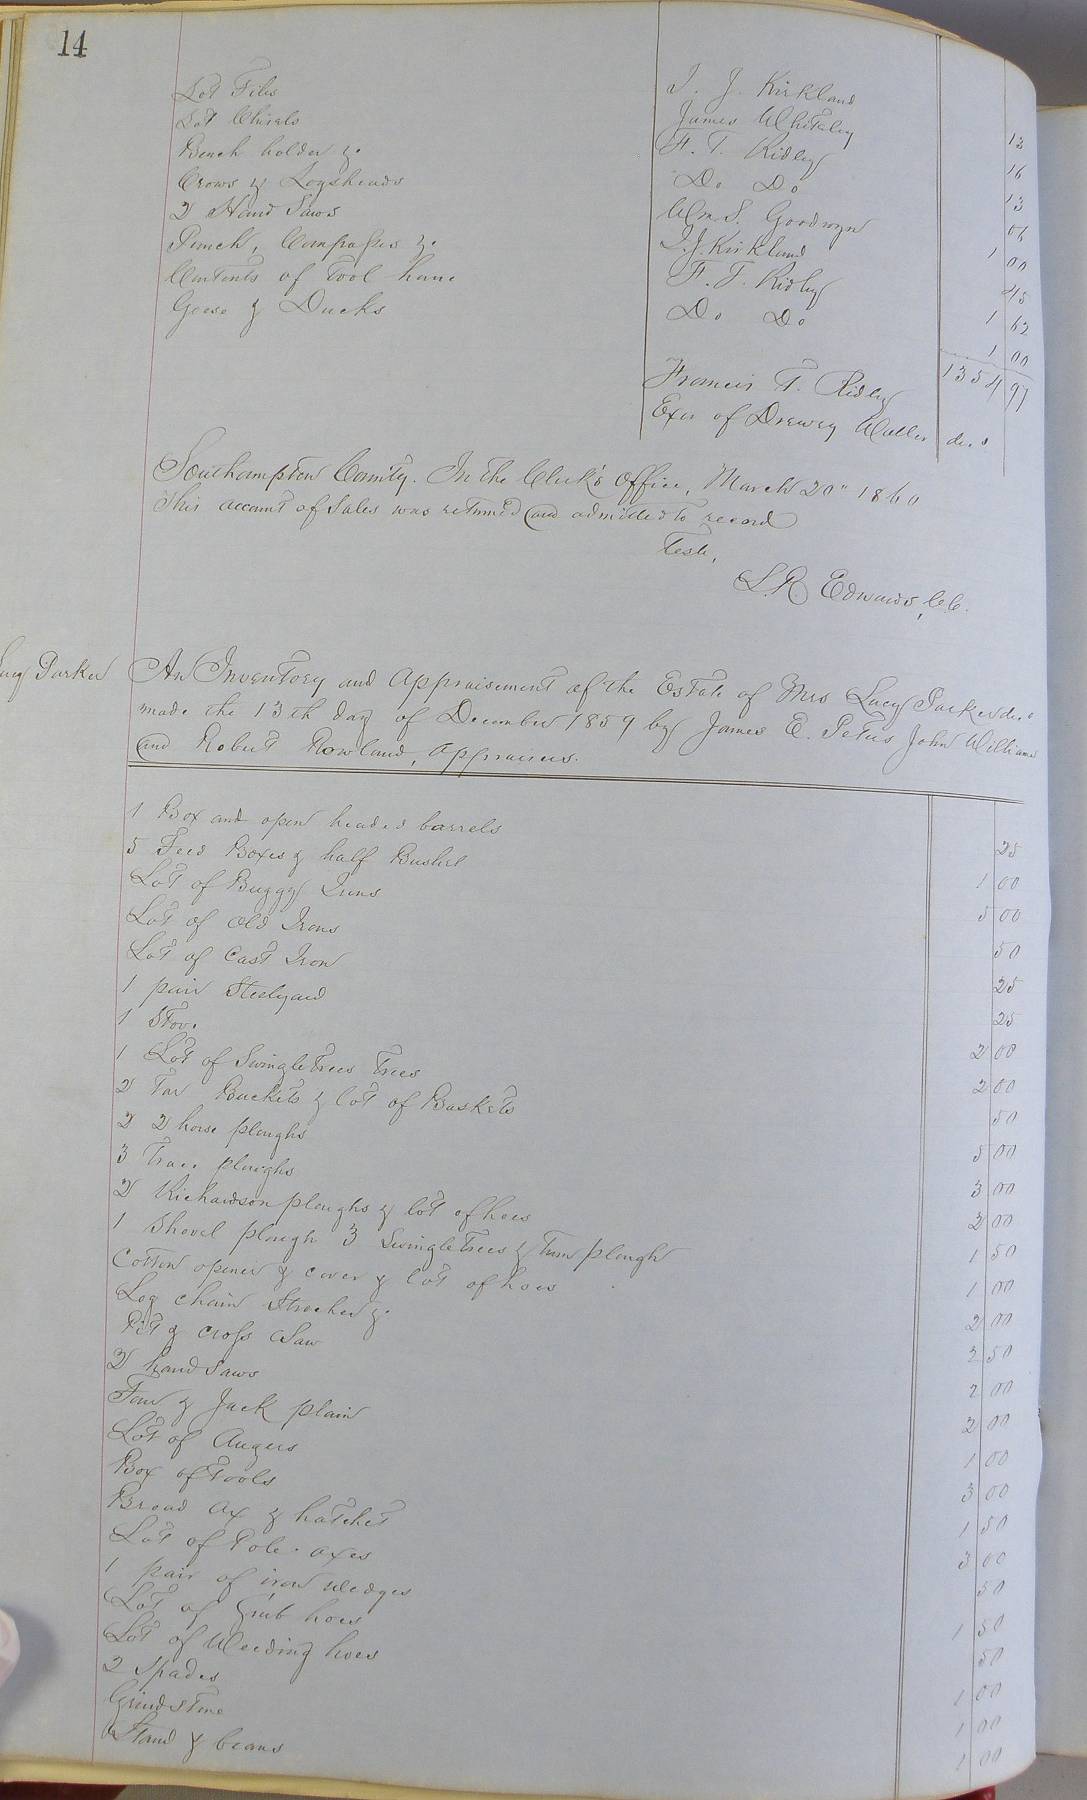 14
Lot Files J. J. Kirkland 12
Lot Chisels James Whitley 16
Bench holder &c. F. T. Ridley 13
Crows & Logsheads Do Do 06
2 Hand Saws Wm. S. Goodwyn 1 00
Punch, Compasses &c. J. J. Kirkland 45
Contents of Tool house F. T. Ridley 1 62
Geese & Ducks Do Do 1 00
1354 97
Francis T. Ridley
Exor of Drewry Waller decd
Southampton County. In the Clerk's Office, March 20" 1860
This account of Sales was returned and admitted to record
Teste,
L. R. Edwards, C.C.
Lucy Parker
An Inventory and Appraisement of the Estate of Mrs Lucy Parker decd
made the 13th day of December 1859 by James E. Petus John Williams
and Robert Rowland, Appraisers.
1 Box and open headed barrels 25
5 Feed Boxes & half Bushel 1 00
Lot of Buggy Irons 5 00
Lot of old Irons 50
Lot of Cast Iron 25
1 pair Steelyard 25
1 Stove 2 00
1 Lot of Swingle Trees Trees 2 00
2 Tar Buckets & lot of Baskets 50
2 2 horse ploughs 5 00
3 Trace ploughs 3 00
2 Richardson ploughs & lot of hoes 2 00
1 Shovel plough 3 Swingle Trees & Turn plough 1 50
Cotton opener & cover & lot of hoes 1 00
Log chain Strecher &c. 2 00
Pit & cross Saw 2 50
2 hand Saws 2 00
Fow & Jack plain 2 00
Lot of Augers 1 00
Box of Tools 3 00
Broad Ax & hatchet 1 50
Lot of Pole axes 3 00
1 pair of iron wedges 50
Lot of Grub hoes 1 50
Lot of Weeding hoes 50
2 Spades 1 00
Grind Stone 1 00
Stand & beans 1 00